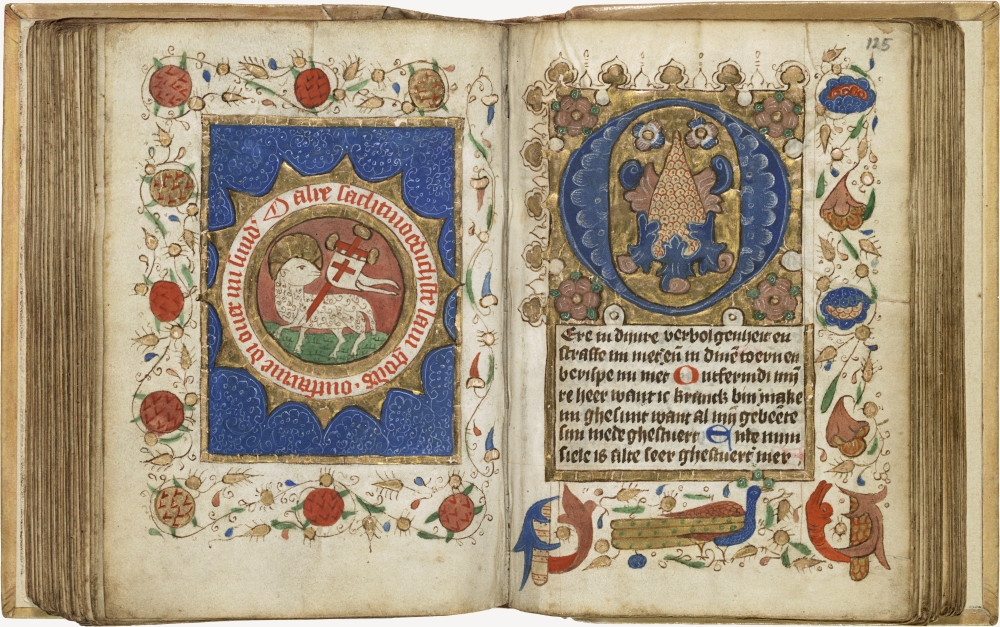 O alre sachtmoedichste lam godes · ontfarme di ouer mi sund'
125
Ere in dijnre verbolgenheit en
straffe mi niet. eñ in dinē toern en
berispe mi niet Ontfermdi mij
re heer want ic kranck bin make
mi ghesunt want al mijn gebeente
sijn mede ghestuert Ende mijn
siele is alte seer ghestuert mer,